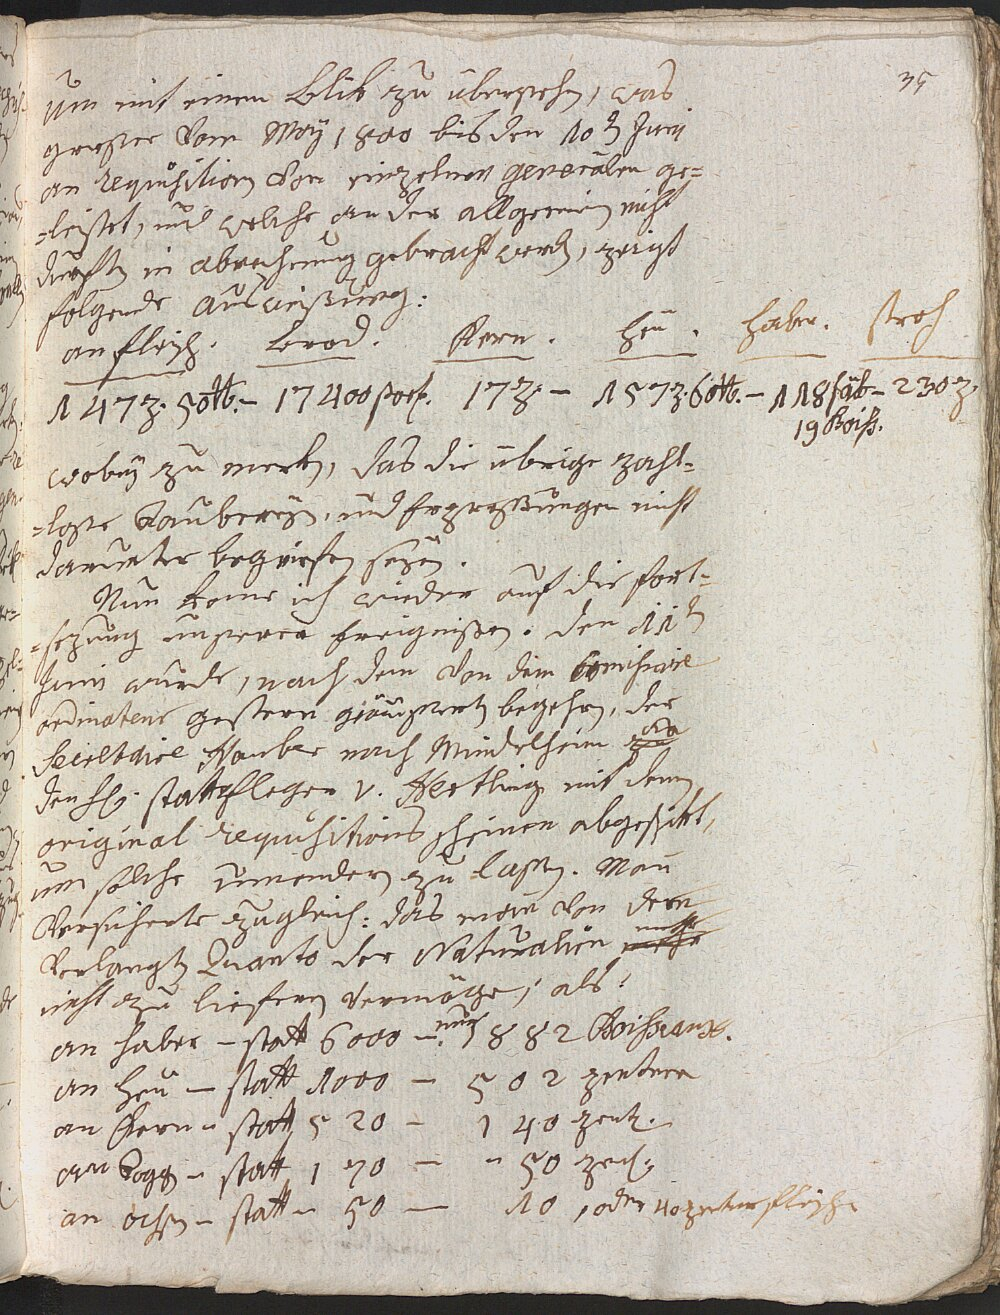 35
Um mit einem Blik zu übersehen, was
grosser vom May 1800 bis den 10t Juni
an requisition von einzelnen generälen ge=
=leistet, und welche an der allgemein nicht
durften in abrechnung gebracht werden, zeigt
folgende Ausweißung:
an fleisch. Brod. Kern. heu. haber. stroh
147 z. 50 ℔. – 17400 port. 17 z. – 157 z. 60 ℔. – 118 säk – 230 z.
19 Boiss.
wobey zu merken, das die übrige zahl=
=lose Raubereyen, und Erpressungen nicht
darunter begriefen seyen.
Nun kome ich wieder auf die fort=
=sezung unserer Ereignißen. den 11t
Juni wurde, nach dem von dem Comissaire
ordinateur gestern geäusserten begehren, der
Secretaire Hauber nach Mindelheim
den H. stattpfleger v. Hertling mit dem
original requisitions scheinen abgeschikt,
um solche umendern zu lassen. Man
versicherte zugleich: das man von dem
verlangten Quanto der Naturalien
nicht zu liefern vermöge, als:
an haber – statt 6000 – nur 882 Boisseaux.
an heu – statt 1000 – 502 zentner
an Kern – statt 520 – 140 zent.
an Rogg – statt 170 – – 50 zent.
an ochsen – statt – 50 – 10, oder 40 zentner fleisch